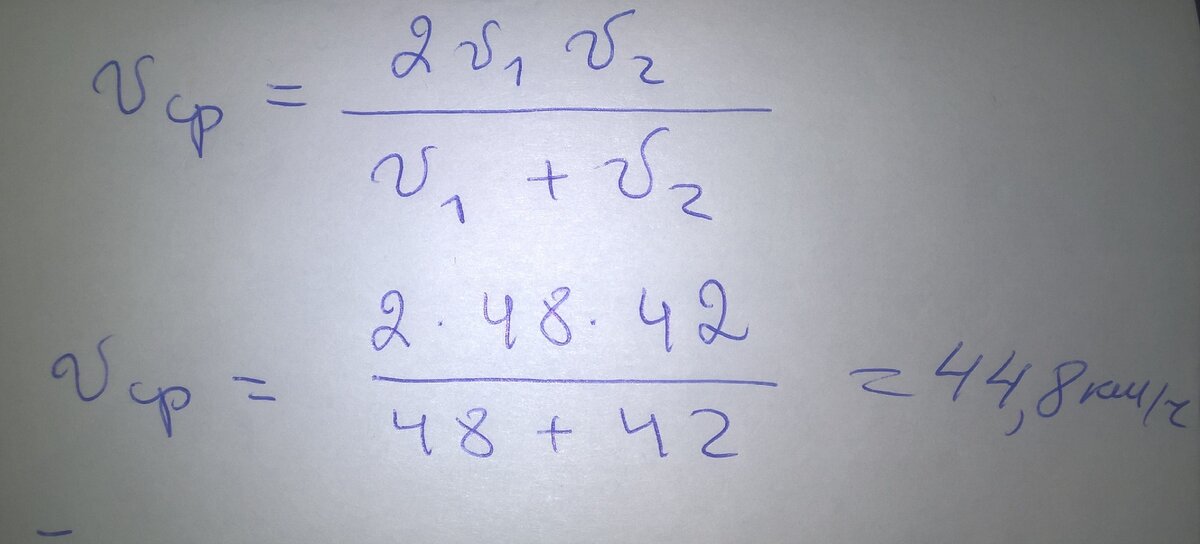 υср = 2υ₁ υ₂ / υ₁ + υ₂
υср = 2 · 48 · 42 / 48 + 42 = 44,8 км/ч